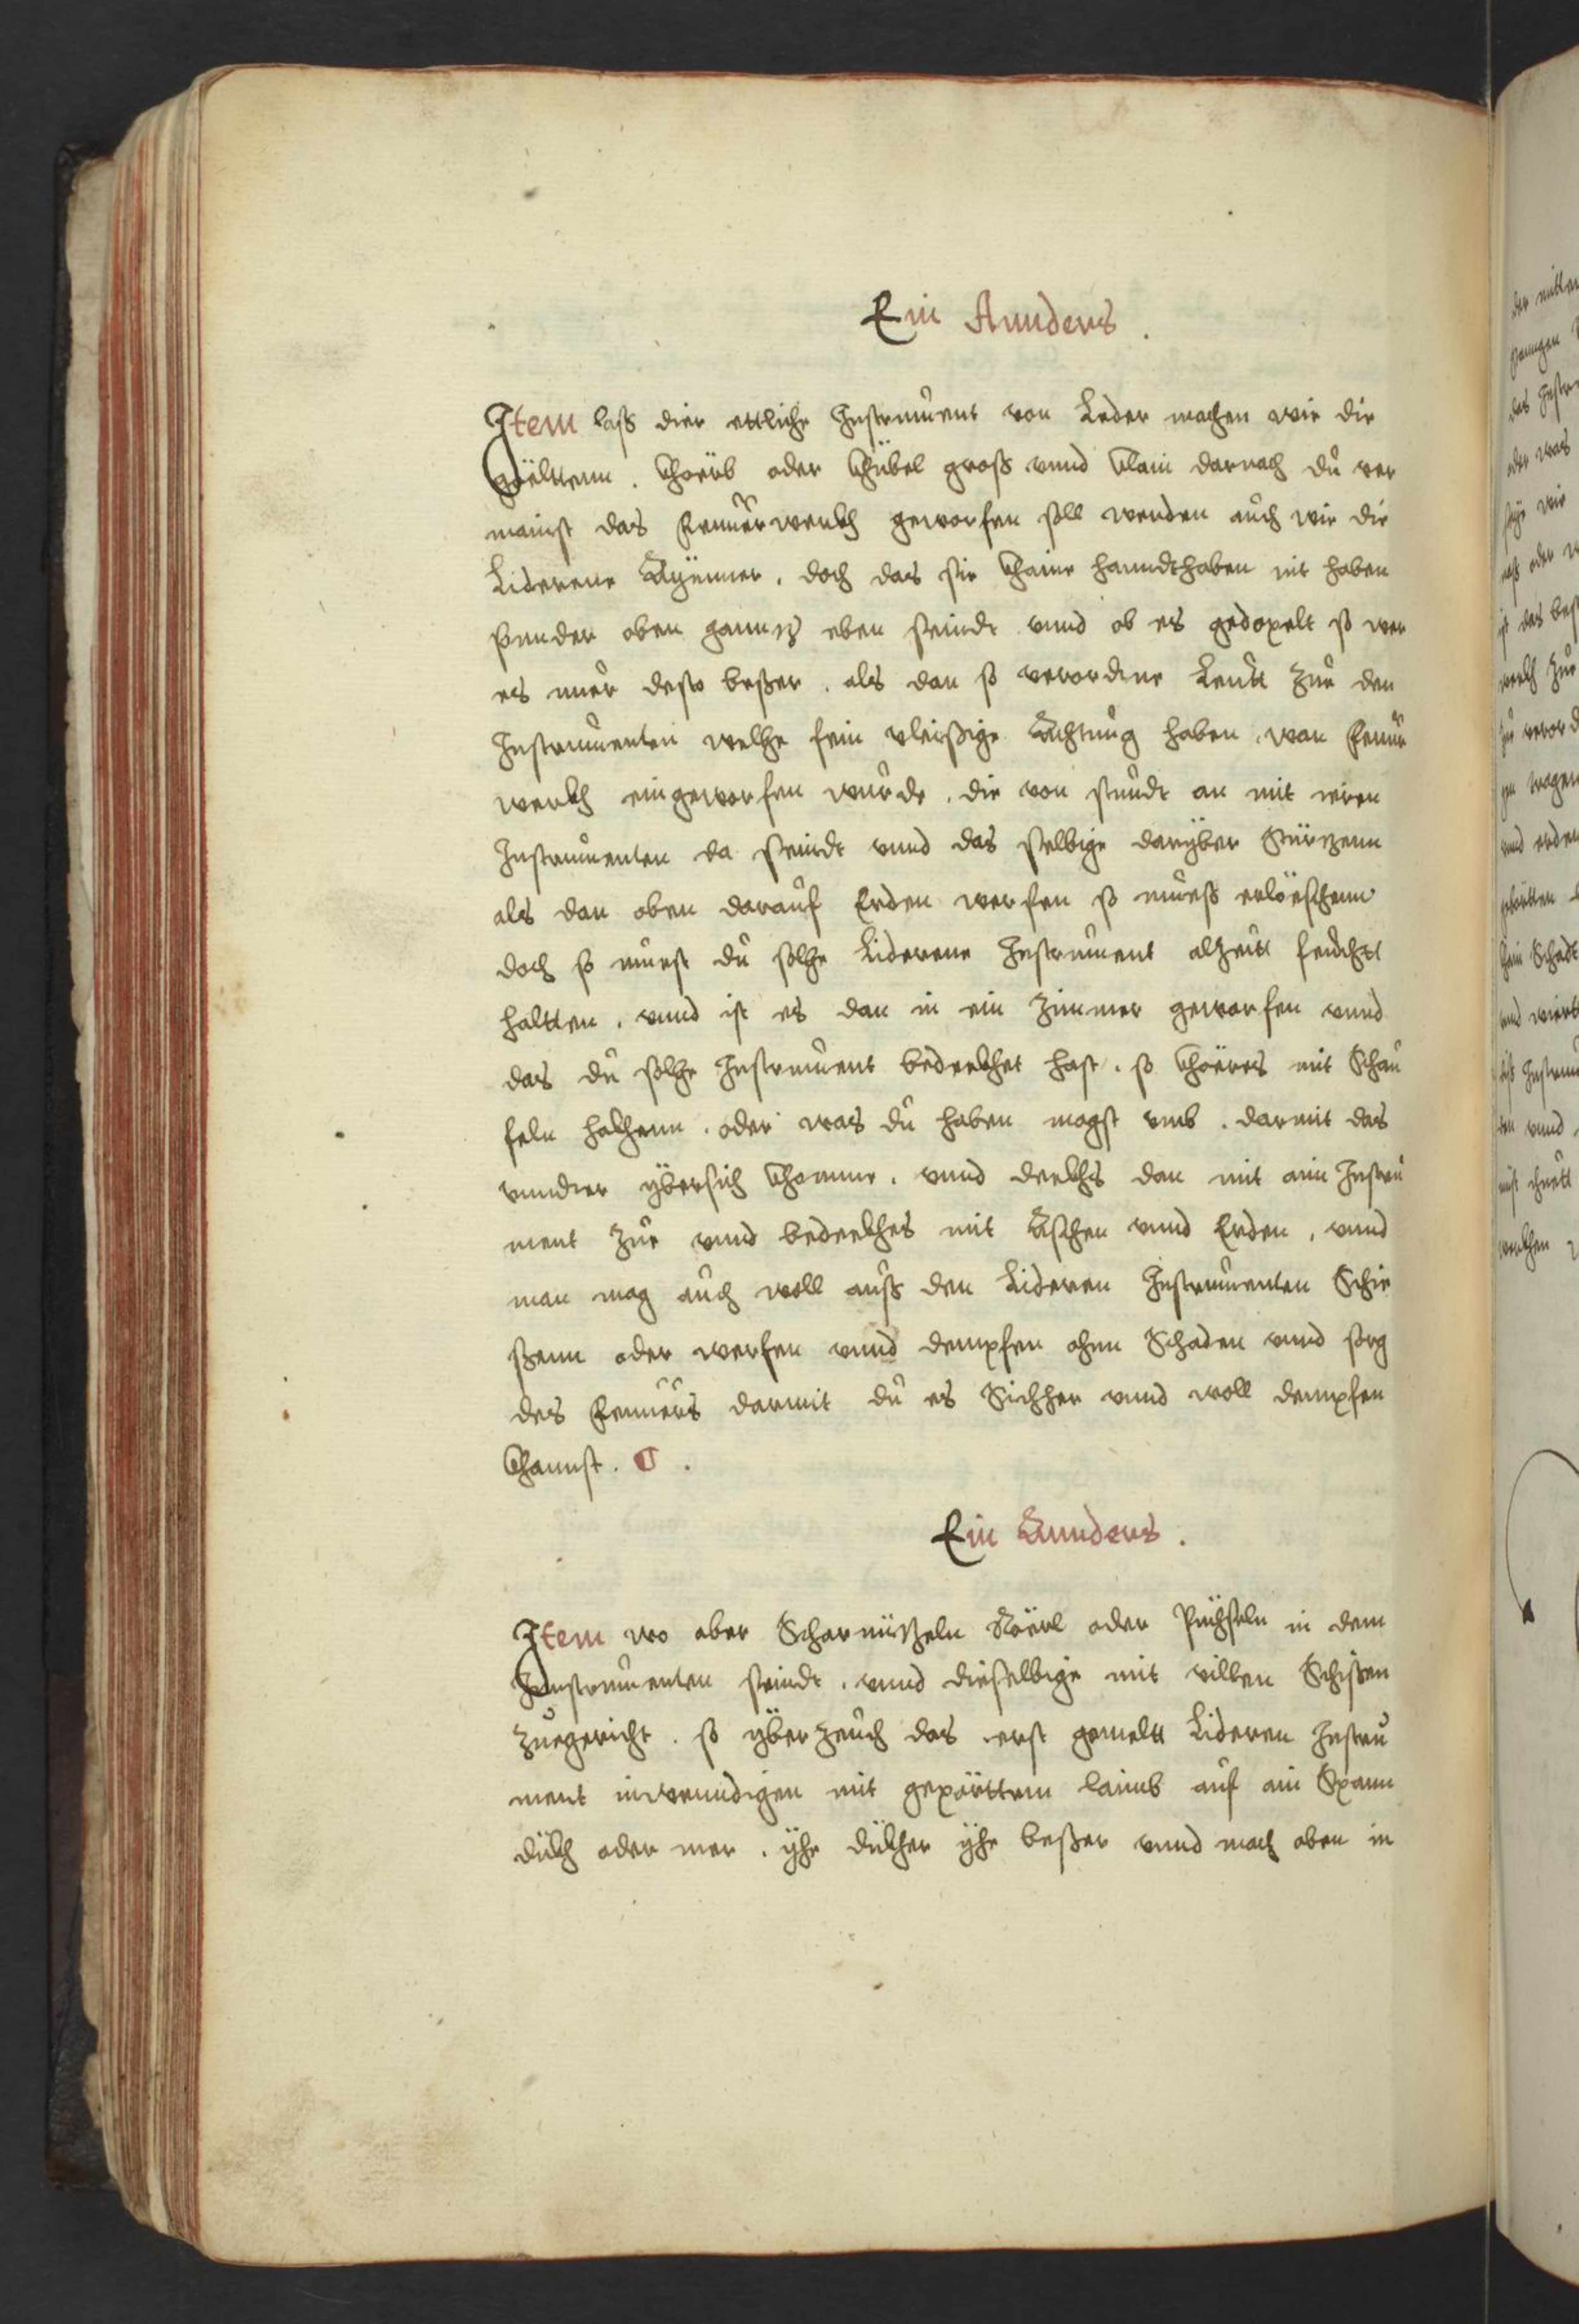 Ein Annders.
Item laß dier ettliche Instrument von Leder machen wie die
göelltenn. Khörb oder Khübel groß vnnd Klain darnach du ver
mainst das Feuuerwerkh geworfen soll werden auch wie die
Liderene Aÿmmer. doch das sie Khaine hanndthaben nit haben
sunder oben gannz eben seindt vnnd ob es gedopelt so wer
es nuer desto beßer. als dan so verordne Leutt zue den
Instrumenten welhe fein vleisßige Achtung haben wan Feuur
werkh eingeworfen wurde. die von stundt an mit iren
Instrumenten da seindt vnnd das selbige darÿber Stürzenn
als dan oben darauf Erden werfen so mueß erlöeschenn
doch so muest du solhe Liderene Instrument alzeitt feuchtt
haltten. vnnd ist es dan in ein Zimmer geworfen vnnd
das du solhe Instrument bedeekhet hast. so Khöeres mit Schau
feln hakhenn. oder was du haben magst vmb. darmit das
vnnder ÿbersich Khomme. vnnd deekhs dan mit ain Instru
ment zue vnnd bedeekhes mit Aschen vnnd Erden. vnnd
man mag auch woll auß den Lideren Instrumenten Schie
ßenn oder werfen vnnd dempfen ohnn Schaden vnnd sorg
des Feuuers darmit du es Sichher vnnd woll dempfen
Khannst.
Ein Annders.
Item wo aber Scharnüzeln Röerl oder Püchseln in dem
Innstrumenten seindt. vnnd dieselbige mit villen Schißen
zuegericht. so ÿberzeuch das erst gemeltt Lideren Instru
ment inwenndigen mit gepörttem laimb auf ain Spann
dükh oder mer. ÿhe dükher ÿhe beßer vnnd mach oben in